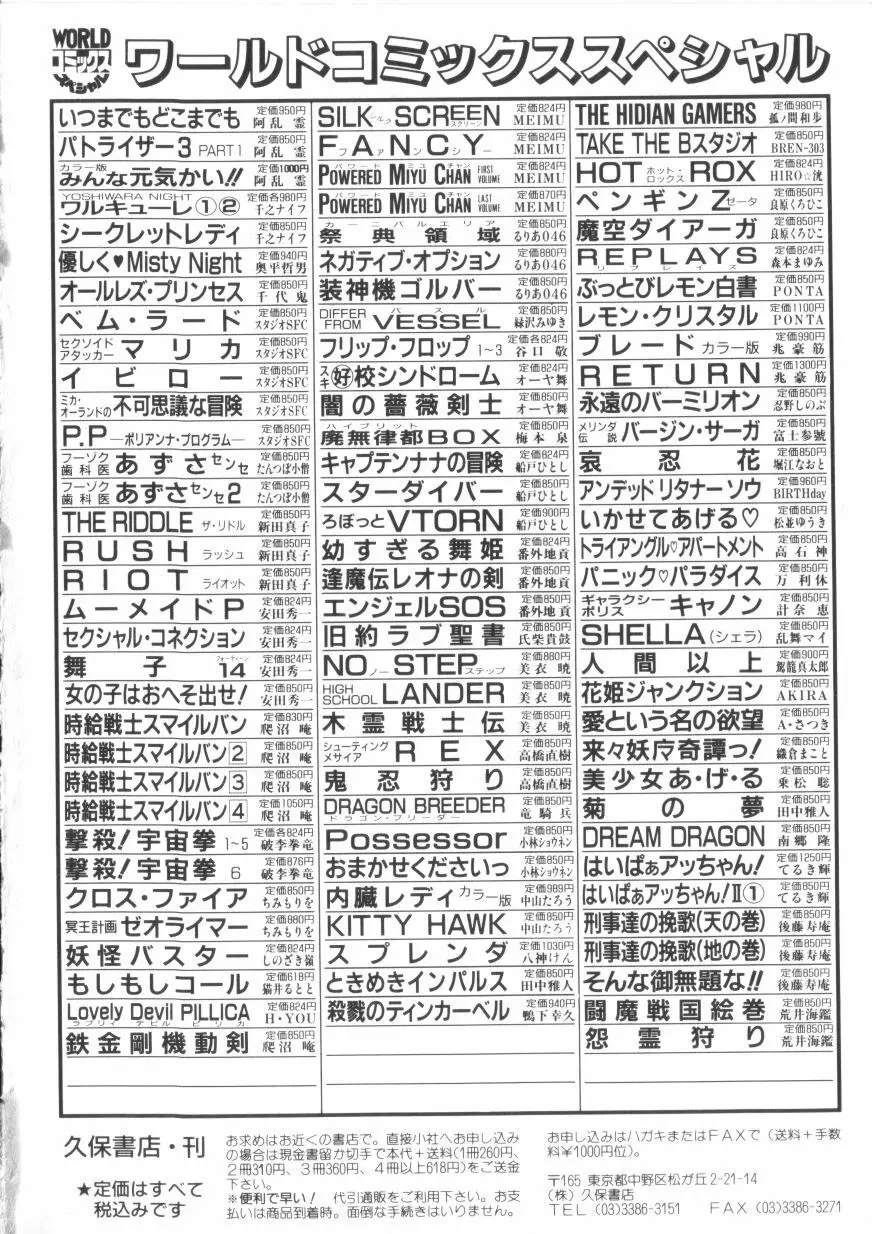 WORLD コミックス スペシャル
ワールドコミックススペシャル
いつまでもどこまでも 定価950円 阿乱 霊
パトライザー3 PART1 定価850円 阿乱 霊
カラー版 みんな元気かい!! 定価1000円 阿乱 霊
YOSHIWARA NIGHT ワルキューレ①② 定価各980円 千之ナイフ
シークレットレディ 定価850円 千之ナイフ
優しく♥Misty Night 定価940円 奥平哲男
オールレズ・プリンセス 定価850円 千代 鬼
ベム・ラード 定価850円 スタジオSFC
セクソイドアタッカー マリカ 定価850円 スタジオSFC
イビロー 定価850円 スタジオSFC
ミカ・オーランドの不可思議な冒険 定価850円 スタジオSFC
P.P ―ポリアンナ・プログラム― 定価850円 スタジオSFC
フーゾク歯科医 あずさセンセ 定価850円 たんつぼ小僧
フーゾク歯科医 あずさセンセ2 定価850円 たんつぼ小僧
THE RIDDLE ザ・リドル 定価850円 新田真子
RUSH ラッシュ 定価850円 新田真子
RIOT ライオット 定価850円 新田真子
ムーメイドP 定価824円 安田秀一
セクシャル・コネクション 定価824円 安田秀一
舞子 フォーティーン 14 定価824円 安田秀一
女の子はおへそ出せ! 定価850円 安田秀一
時給戦士スマイルバン 定価830円 爬沼 唵
時給戦士スマイルバン2 定価850円 爬沼 唵
時給戦士スマイルバン3 定価850円 爬沼 唵
時給戦士スマイルバン4 定価1050円 爬沼 唵
撃殺!宇宙拳 1~5 定価各824円 破李拳竜
撃殺!宇宙拳 6 定価876円 破李拳竜
クロス・ファイア 定価850円 ちみもりを
冥王計画 ゼオライマー 定価880円 ちみもりを
妖怪バスター 定価824円 しのざき嶺
もしもしコール 定価618円 猫井るとと
Lovely Devil PILLICA ラブリィ デビル ピリカ 定価824円 H・YOU
鉄金剛機動剣 定価850円 爬沼 唵
SILK シルク SCREEN スクリーン 定価824円 MEIMU
FANCY ファンシー 定価824円 MEIMU
パワード ミユ チャン POWERED MIYU CHAN FIRST VOLUME 定価824円 MEIMU
パワード ミユ チャン POWERED MIYU CHAN LAST VOLUME 定価870円 MEIMU
カーニバルエリア 祭典領域 定価850円 るりあ046
ネガティブ・オプション 定価880円 るりあ046
装神機ゴルバー 定価850円 るりあ046
DIFFER FROM VESSEL ベスル 定価850円 緑沢みゆき
フリップ・フロップ 1~3 定価各824円 谷口 敬
スキ 好校シンドローム 定価824円 オーヤ舞
闇の薔薇剣士 定価850円 オーヤ舞
ハイブリット 廃無律都BOX 定価850円 梅本 泉
キャプテンナナの冒険 定価824円 船戸ひとし
スターダイバー 定価850円 船戸ひとし
ろぼっとVTORN 定価900円 船戸ひとし
幼すぎる舞姫 定価824円 番外地貢
逢魔伝レオナの剣 定価850円 番外地貢
エンジェルSOS 定価850円 番外地貢
旧約ラブ聖書 定価850円 氏柴貴鼓
NO ノー STEP ステップ 定価880円 美衣 暁
HIGH SCHOOL LANDER 定価850円 美衣 暁
木霊戦士伝 定価850円 美衣 暁
シューティングメサイア REX 定価850円 高橋直樹
鬼忍狩り 定価850円 高橋直樹
DRAGON BREEDER ドラゴン・ブリーダー 定価850円 竜騎兵
Possessor 定価850円 小林ショウネン
おまかせくださいっ 定価850円 小林ショウネン
内臓レディ カラー版 定価989円 中山たろう
KITTY HAWK 定価850円 中山たろう
スプレンダ 定価1030円 八神けん
ときめきインパルス 定価850円 田中雅人
殺戮のティンカーベル 定価940円 鴨下幸久
THE HIDIAN GAMERS 定価980円 狐ノ間和歩
TAKE THE Bスタジオ 定価850円 BREN-303
HOT ホット・ロックス ROX 定価824円 HIRO☆洸
ペンギンZ ゼータ 定価850円 良原くろひこ
魔空ダイアーガ 定価850円 良原くろひこ
REPLAYS リプレイズ 定価824円 森本まゆみ
ぶっとびレモン白書 定価850円 PONTA
レモン・クリスタル 定価1100円 PONTA
ブレード カラー版 定価990円 兆豪筋
RETURN 定価1300円 兆豪筋
永遠のバーミリオン 定価850円 忍野しのぶ
メリンダ伝説 バージン・サーガ 定価850円 富士参號
哀忍花 定価850円 堀江なおと
アンデッドリタナーソウ 定価960円 BIRTHday
いかせてあげる♡ 定価850円 松並ゆうき
トライアングル♡アパートメント 定価850円 高石神
パニック♡パラダイス 定価850円 万利休
ギャラクシーポリス キャノン 定価850円 計奈 恵
SHELLA(シェラ) 定価850円 乱舞マイ
人間以上 定価900円 駕籠真太郎
花姫ジャンクション 定価850円 AKIRA
愛という名の欲望 定価850円 A・さつき
来々妖疗奇譚っ! 定価850円 織倉まこと
美少女あ・げ・る 定価850円 乗松 聡
菊の夢 定価850円 田中雅人
DREAM DRAGON 定価850円 南郷 隆
はいぱぁアッちゃん! 定価1250円 てるき輝
はいぱぁアッちゃん!Ⅱ① 定価850円 てるき輝
刑事達の挽歌(天の巻) 定価850円 後藤寿庵
刑事達の挽歌(地の巻) 定価850円 後藤寿庵
そんな御無題な!! 定価850円 後藤寿庵
闘魔戦国絵巻 定価850円 荒井海鑑
怨霊狩り 定価850円 荒井海鑑
久保書店・刊
★定価はすべて
税込みです
お求めはお近くの書店で。直接小社へお申し込み
の場合は現金書留か切手で本代+送料(1冊260円、
2冊310円、3冊360円、4冊以上618円)をご送金
下さい。
※便利で早い! 代引通販をご利用下さい。お支
払いは商品到着時。面倒な手続きはいりません。
お申し込みはハガキまたはFAXで(送料+手数
料¥1000円位)。
〒165 東京都中野区松が丘2-21-14
(株)久保書店
TEL (03)3386-3151 FAX (03)3386-3271